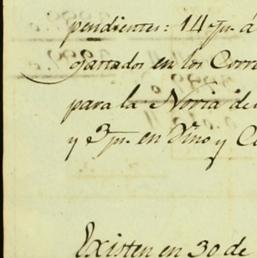 pendientes: 14 p.s á
gastados en los Corre
para la Noria de
y 3 p.s en Vino y C
Existen en 30 de